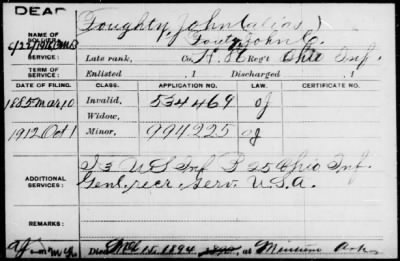 DEAD
NAME OF SOLDIER: Doughty, John (alias)
Douty, John C.
SERVICE: Late rank, Co. H. Reg't Ohio Inf.
TERM OF SERVICE: Enlisted , 1 Discharged , 1
DATE OF FILING. CLASS. APPLICATION NO. LAW. CERTIFICATE NO.
1885 Mar 10 Invalid, 534469
Widow,
1912 Oct 1 Minor, 994225
ADDITIONAL SERVICES: I 3 U S Inf B 25 Ohio Inf.
Genl. recr. serv. U.S.A.
REMARKS:
Died 1894 at Ark